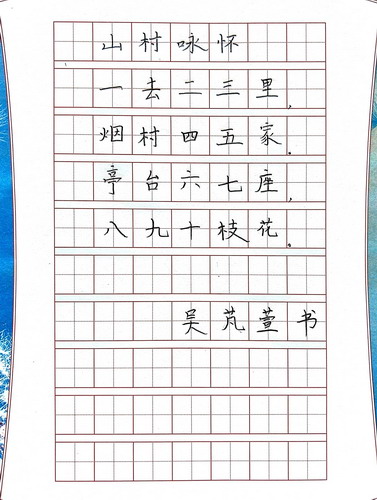 山村咏怀
一去二三里，
烟村四五家。
亭台六七座，
八九十枝花。
吴芃萱书